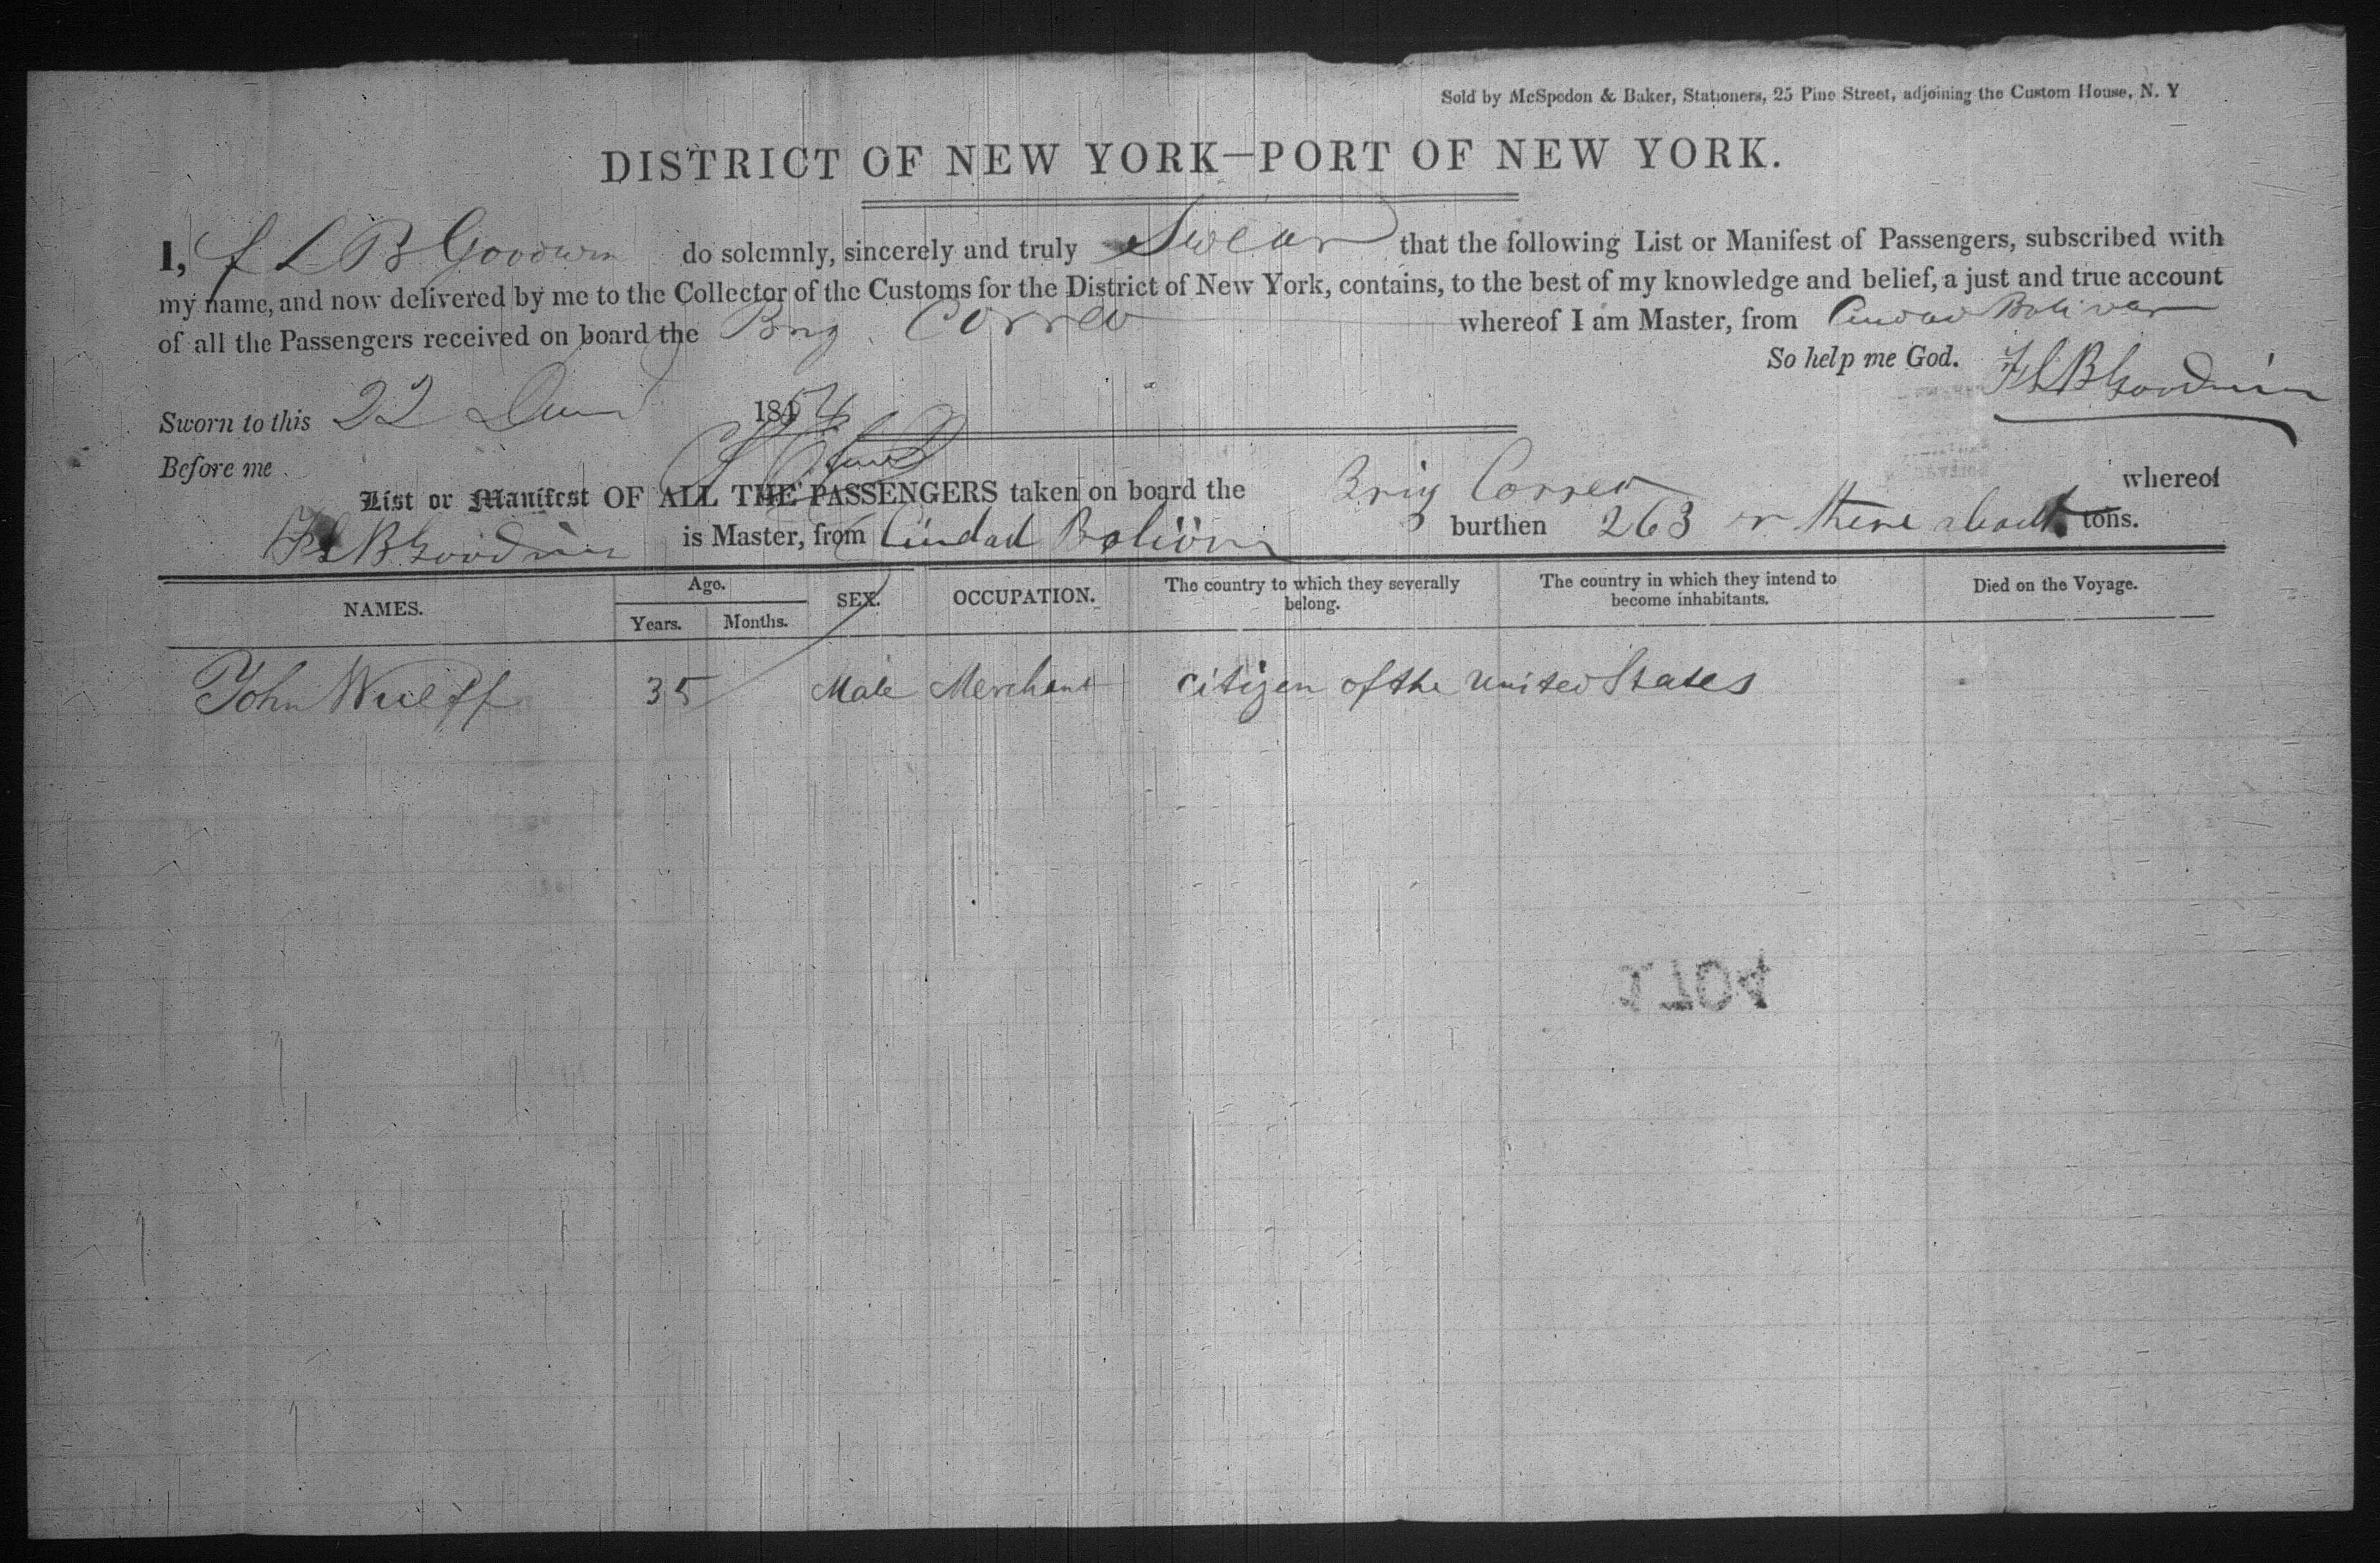 Sold by McSpedon & Baker, Stationers, 25 Pine Street, adjoining the Custom House, N. Y
DISTRICT OF NEW YORK—PORT OF NEW YORK.
I, F L B Goodwin do solemnly, sincerely and truly Swear that the following List or Manifest of Passengers, subscribed with
my name, and now delivered by me to the Collector of the Customs for the District of New York, contains, to the best of my knowledge and belief, a just and true account
of all the Passengers received on board the Brig Correo whereof I am Master, from Ciudad Bolivar
So help me God. F L B Goodwin
Sworn to this 22 1854
Before me
List or Manifest OF ALL THE PASSENGERS taken on board the Brig Correo whereof
F L B Goodwin is Master, from Ciudad Bolivar burthen 263 or there about tons.
NAMES. Age. SEX. OCCUPATION. The country to which they severally belong. The country in which they intend to become inhabitants. Died on the Voyage.
Years. Months.
John Wulff 35 Male Merchant citizen of the United States